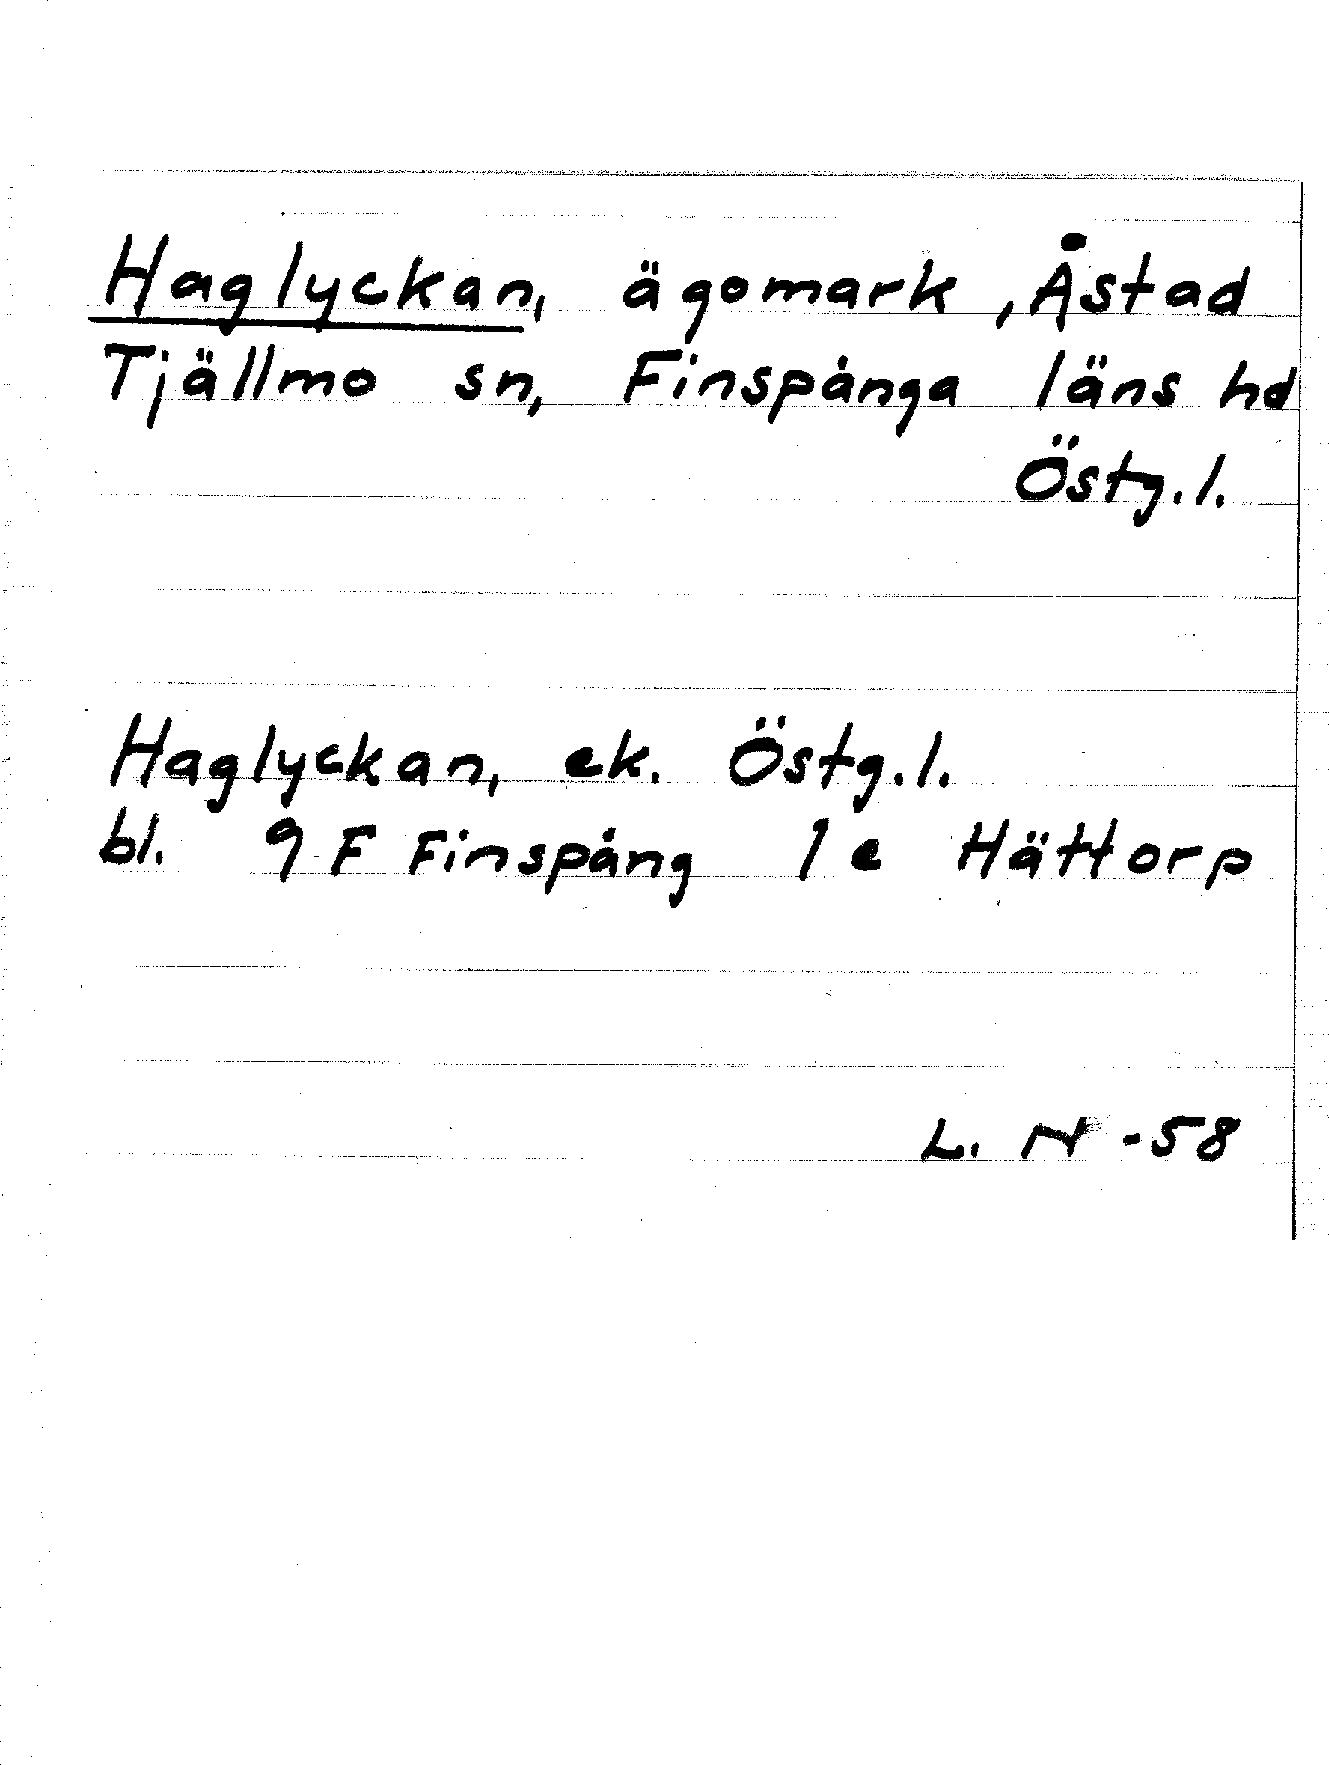 Haglyckan, ägomark, Åstad
Tjällmo sn, Finspånga läns hd
Östg.l.
Haglyckan, ek. Östg.l.
bl. 9 F Finspång 1 e Hättorp
L. N -58